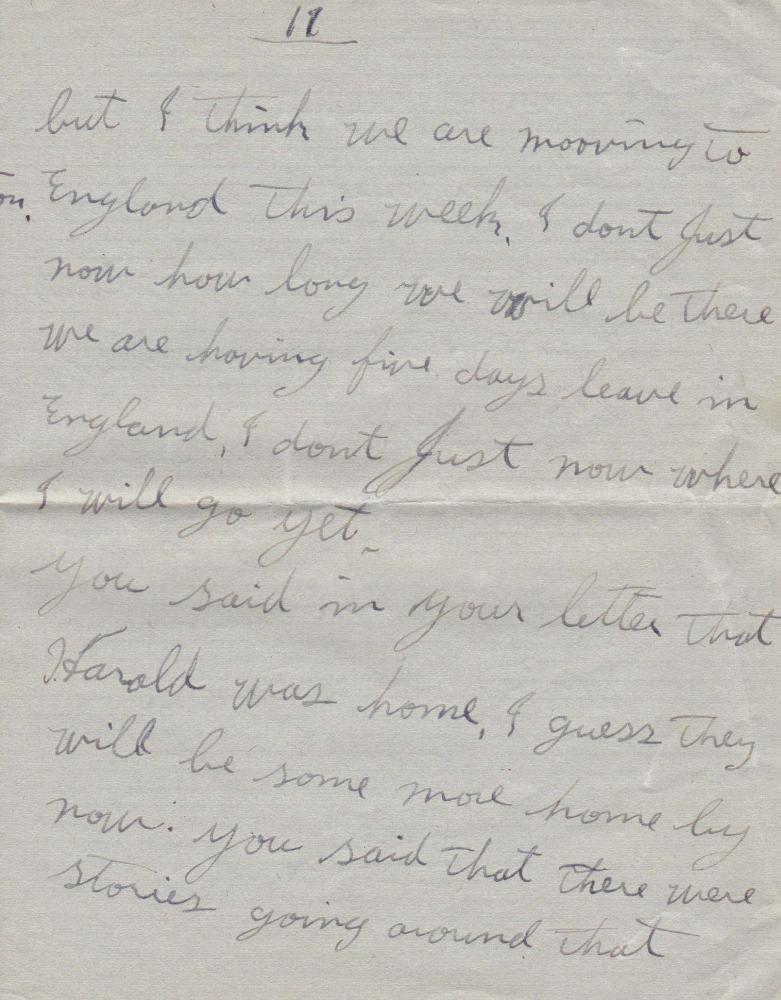 11
but I think we are mooving to
England this week. I dont Just
now how long we will be there
we are having five days leave in
England, I dont Just now where
I will go yet.
you said in your letter that
Harold was home, I guess they
will be some more home by
now. you said that there were
stories going around that